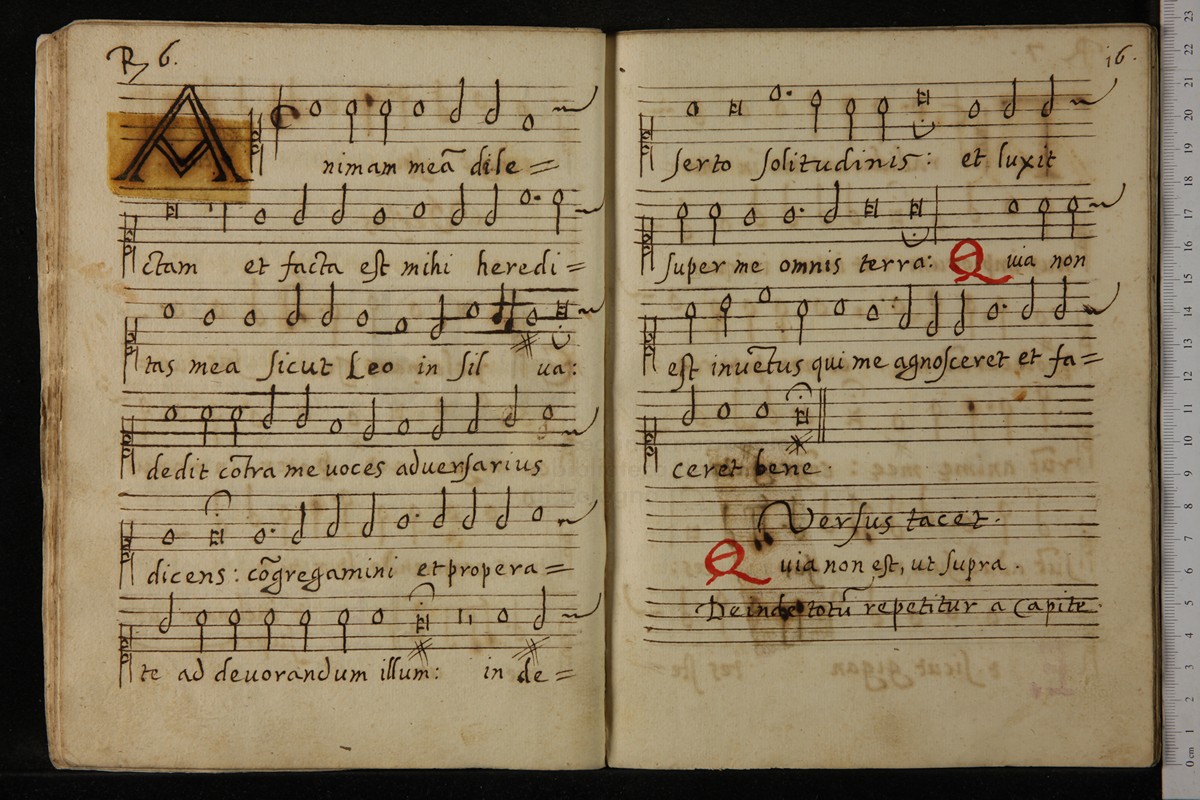 R 6.
Animam meā dile=
ctam et facta est mihi heredi=
tas mea sicut Leo in sil ua:
dedit cōtra me uoces aduersarius
dicens: cōgregamini et propera=
te ad deuorandum illum: in de=
16.
serto solitudinis: et luxit
super me omnis terra: Quia non
est inuētus qui me agnosceret et fa=
ceret bene.
Versus tacet.
Quia non est, ut supra.
Deinde totū repetitur a Capite.